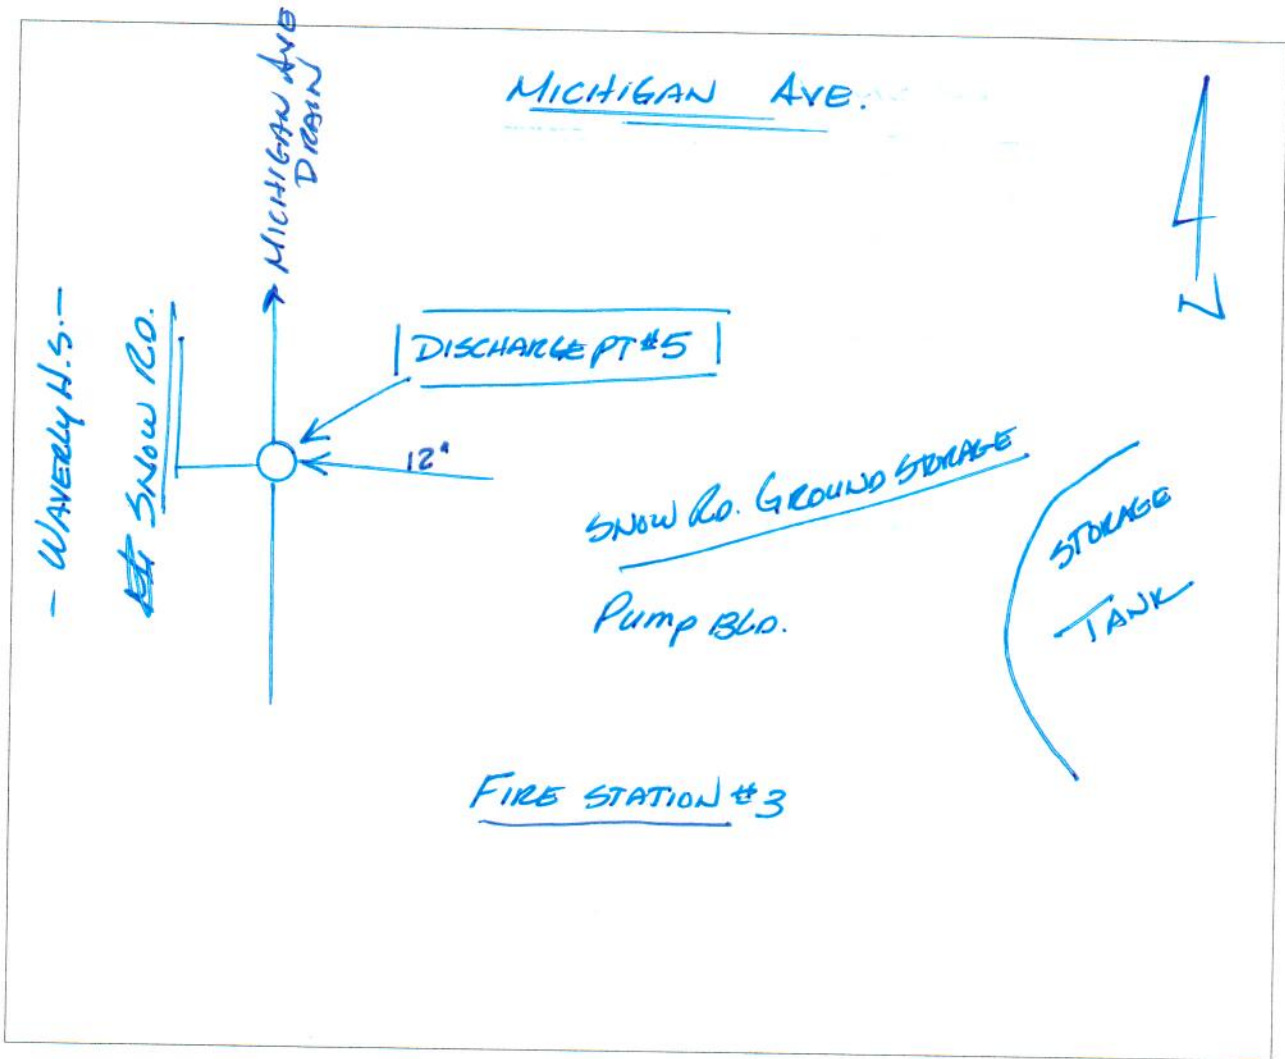 MICHIGAN AVE
DRAIN
MICHIGAN AVE.
- WAVERLY H.S. -
SNOW RD.
DISCHARGE PT #5
12"
SNOW RD. GROUND STORAGE
PUMP BLD.
STORAGE
TANK
FIRE STATION #3